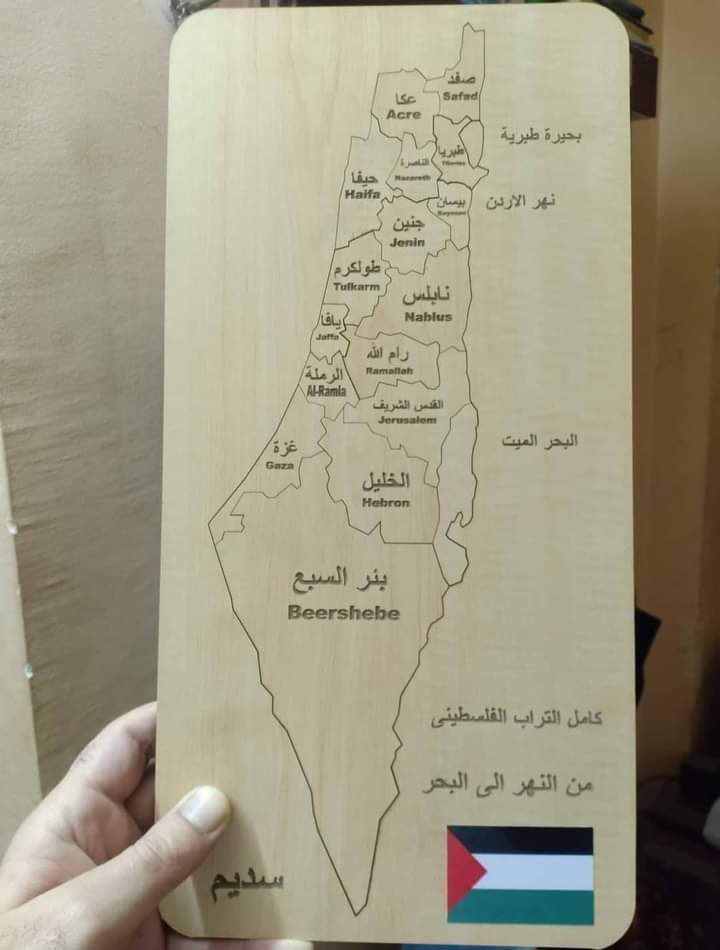 صفد
Safad
عكا
Acre
بحيرة طبرية
طبريا
الناصرة
Nazareth
حيفا
Haifa
بيسان
نهر الاردن
جنين
Jenin
طولكرم
Tulkarm
نابلس
Nablus
يافا
Jaffa
رام الله
Ramallah
الرملة
Al-Ramla
القدس الشريف
Jerusalem
البحر الميت
غزة
Gaza
الخليل
Hebron
بئر السبع
Beershebe
كامل التراب الفلسطينى
من النهر الى البحر
سديم